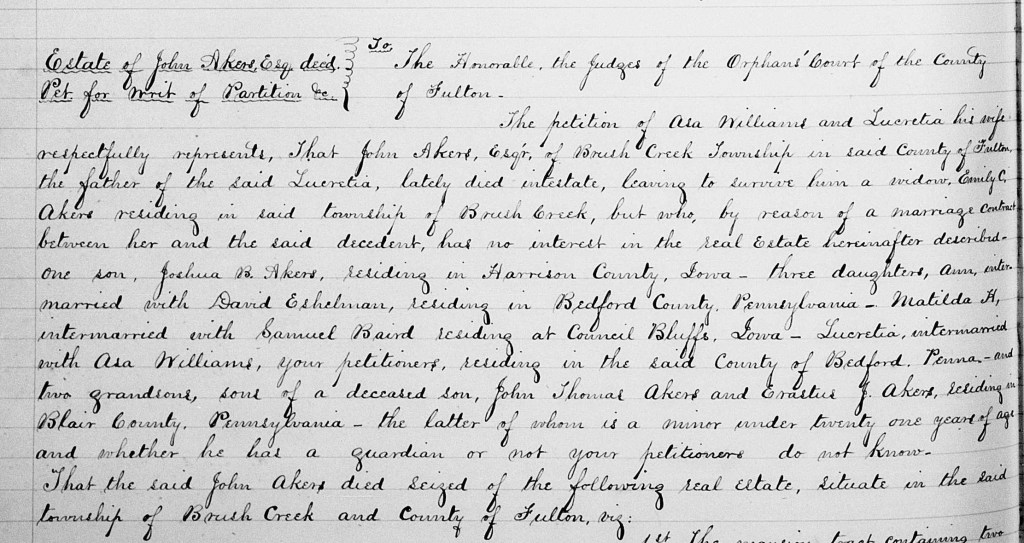 Estate of John Akers, Esq, dec'd.
Pet. for Writ of Partition &c.
To The Honorable, the Judges of the Orphans' Court of the County
of Fulton -
The petition of Asa Williams and Lucretia his wife
respectfully represents, That John Akers, Esq'r, of Brush Creek Township in said County of Fulton,
the father of the said Lucretia, lately died intestate, leaving to survive him a widow, Emily C.
Akers residing in said township of Brush Creek, but who, by reason of a marriage contract
between her and the said decedent, has no interest in the real Estate hereinafter described-
one son, Joshua B. Akers, residing in Harrison County, Iowa - three daughters, Ann, inter-
married with David Eshelman, residing in Bedford County, Pennsylvania - Matilda H,
intermarried with Samuel Baird residing at Council Bluffs, Iowa - Lucretia, intermarried
with Asa Williams, your petitioners, residing in the said County of Bedford, Penna. - and
two grandsons, sons of a deceased son, John Thomas Akers and Erastus J. Akers, residing in
Blair County, Pennsylvania - the latter of whom is a minor under twenty one years of age
and whether he has a guardian or not your petitioners do not know-
That the said John Akers died seized of the following real estate, situate in the said
township of Brush Creek and County of Fulton, viz:
1st The mansion tract containing two